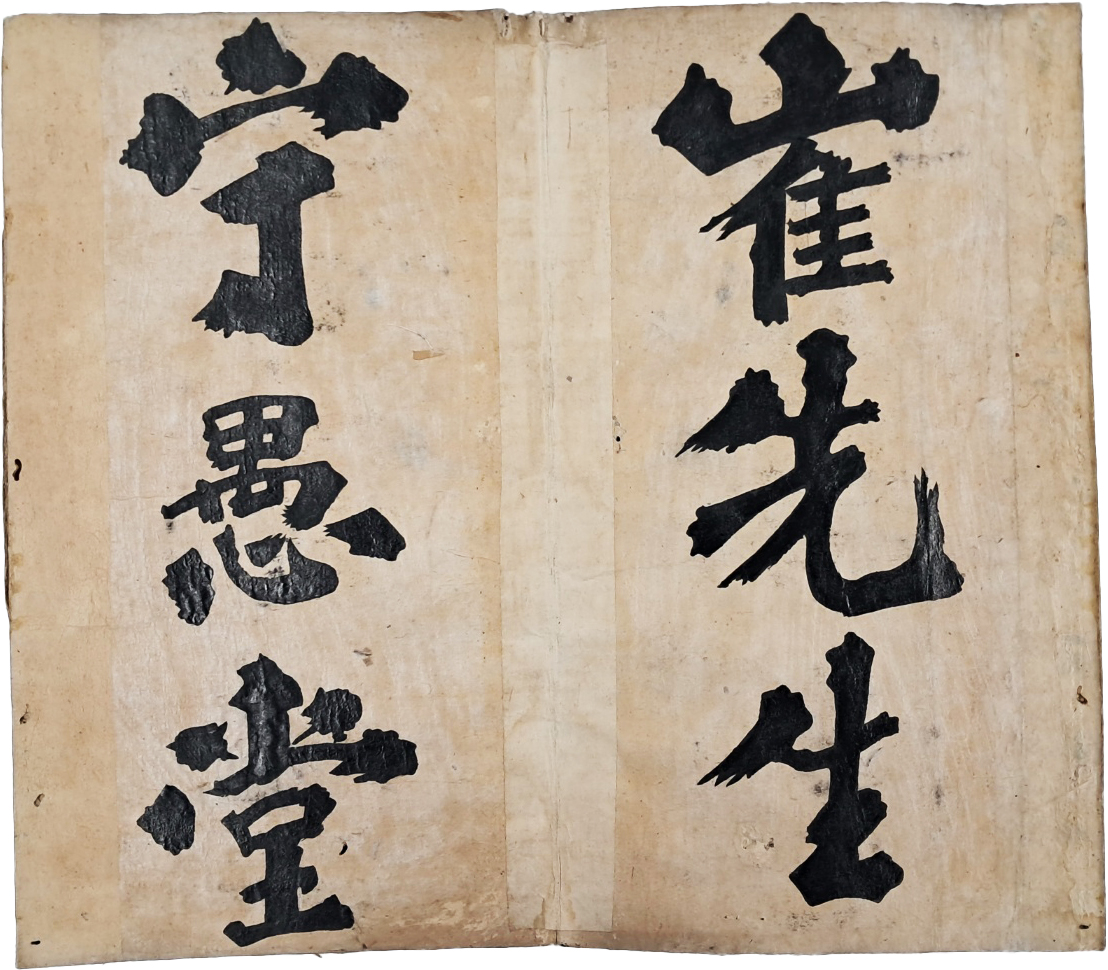 崔先生
宁愚堂